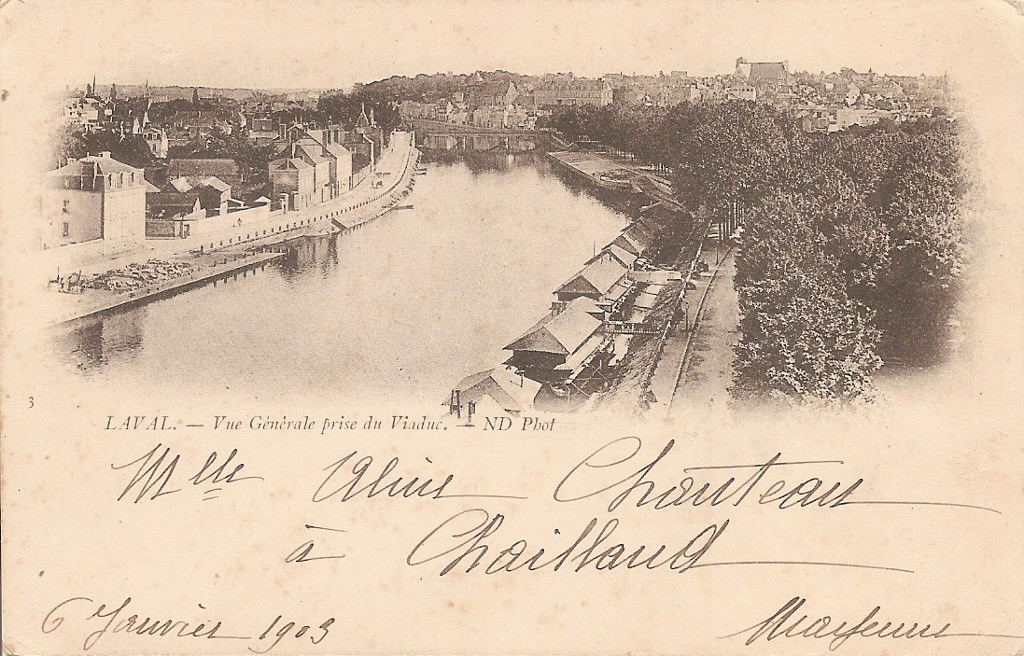 3
LAVAL. — Vue Générale prise du Viaduc. — ND Phot
Mlle Aline Chanteau
à Chailland
6 Janvier 1903 Mayenne